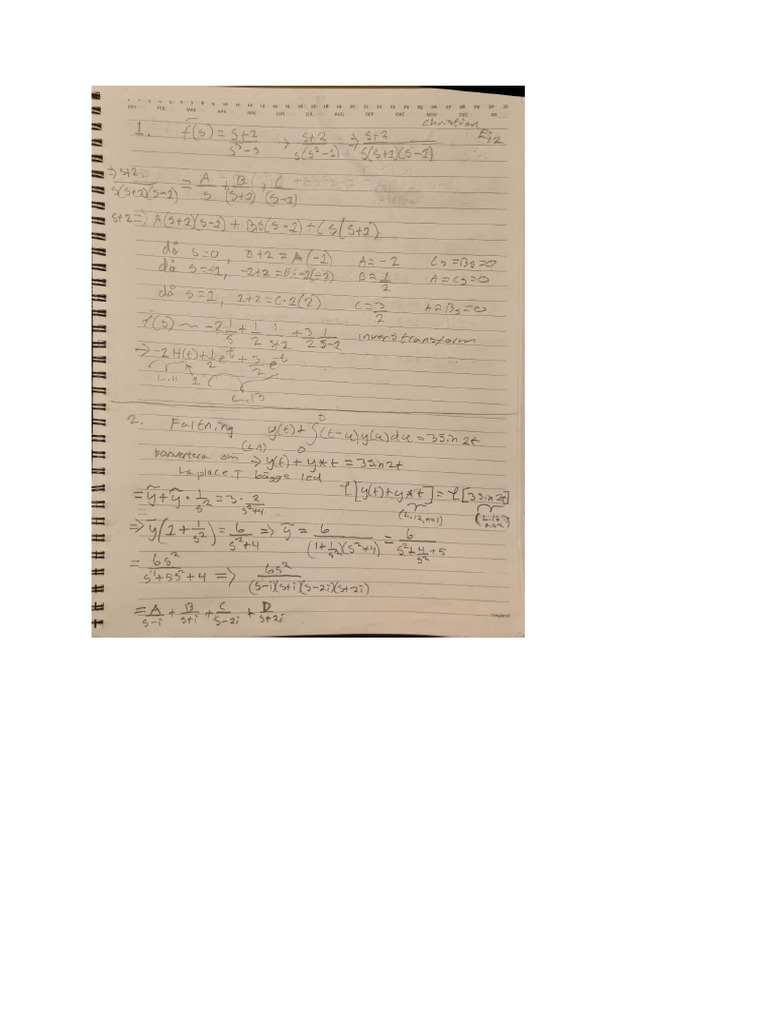 Christian Ei2
1. f̃(s) = s+2/s³-s → s+2/s(s²-1) ⇒ s+2/s(s+1)(s-1)
⇒ s+2/s(s+1)(s-1) = A/s + B/(s+1) + C/(s-1)
s+2 ⇒ A(s+1)(s-1) + Bs(s-1) + Cs(s+1)
då s=0, 0+2 = A(-1) A=-2 Cs=Bs=0
då s=-1, -1+2=B(-1)(-2) B=1/2 A=Cs=0
då s=1, 1+2=C·1(2) C=3/2 A=Bs=0
f̃(s) ~ -2 1/s + 1/2 1/s+1 + 3/2 1/s-1 inverstransform
→ -2H(t) + 1/2 e^-t + 3/2 e^-t
L.11 1 L.13
2. Faltning y(t) + ∫(t-u)y(u)du = 3sin2t
(L.9)
konvertera om ⇒ y(t) + y*t = 3sin2t
Laplace T bägge led ℒ[y(t)+y*t] = ℒ[3sin2t]
= ỹ + ỹ · 1/s² = 3 · 2/s²+4 (L.12, n=1)
⇒ ỹ(1 + 1/s²) = 6/s²+4 ⇒ ỹ = 6/(1+1/s²)(s²+4) = 6/s²+4/s²+5
= 6s²/s⁴+5s²+4 ⇒ 6s²/(s-i)(s+i)(s-2i)(s+2i)
= A/s-i + B/s+i + C/s-2i + D/s+2i